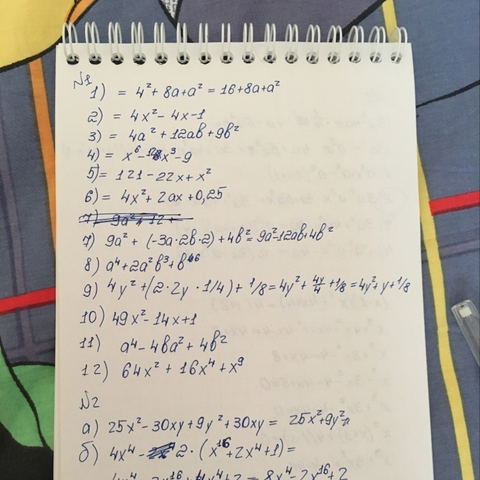 №1
1) = 4² + 8a + a² = 16 + 8a + a²
2) = 4x² - 4x - 1
3) = 4a² + 12ab + 9b²
4) = x⁶ - x³ - 9
5) = 121 - 22x + x²
6) = 4x² + 2ax + 0,25
7) 9a² + 12
7) 9a² + (-3a·2b·2) + 4b² = 9a² - 12ab + 4b²
8) a⁴ + 2a²b³ + b⁶
9) 4y² + (2·2y·1/4) + 1/8 = 4y² + 4y/4 + 1/8 = 4y² + y + 1/8
10) 49x² - 14x + 1
11) a⁴ - 4ba² + 4b²
12) 64x² + 16x⁴ + x⁹
№2
а) 25x² - 30xy + 9y² + 30xy = 25x² + 9y²
б) 4x⁴ - 2·(x¹⁶ + 2x⁴ + 1) =
= 8x⁴ - 2x¹⁶ + 2